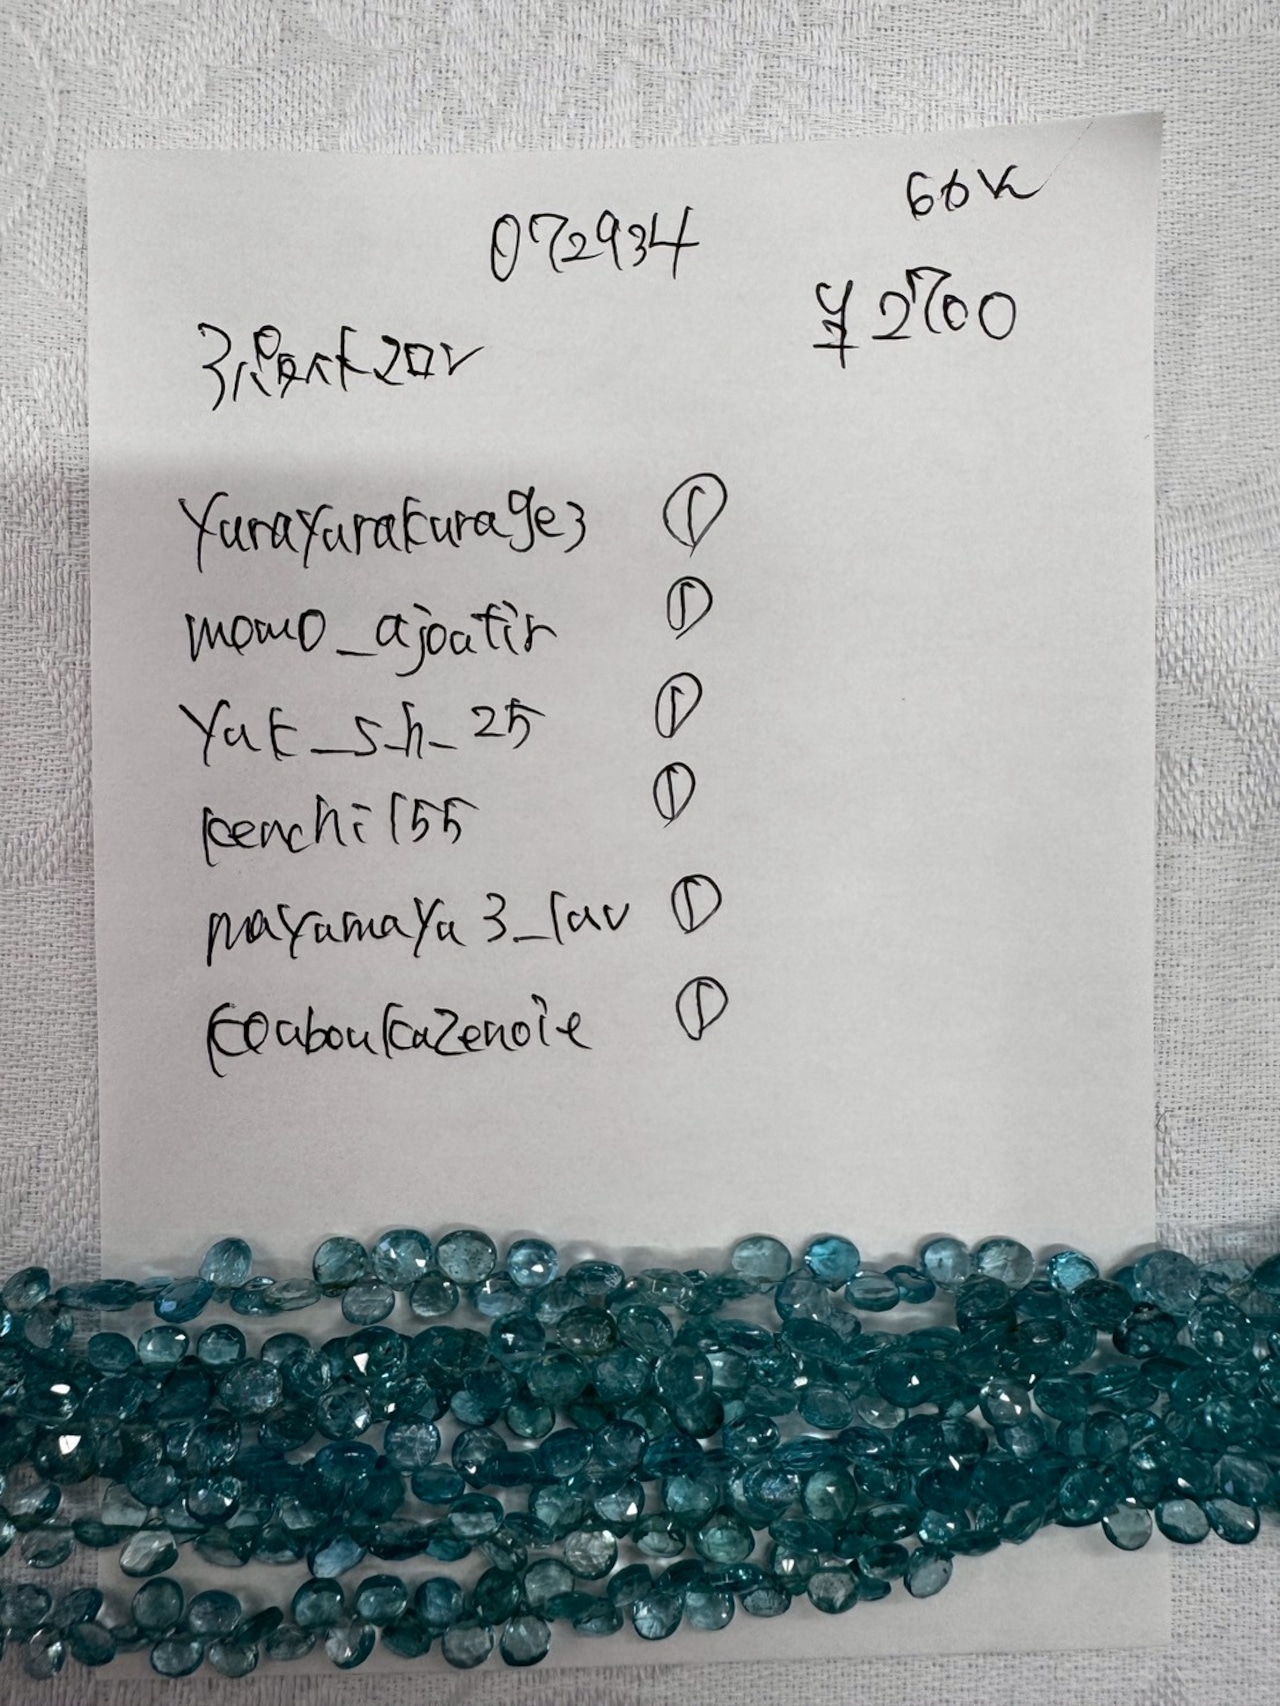 072934
¥2700
yurayurakurage3 ①
momo_ajoatir ①
yuk_s_h_25 ①
kenchi155 ①
mayamaya3_luv ①
kouboukazenoie ①